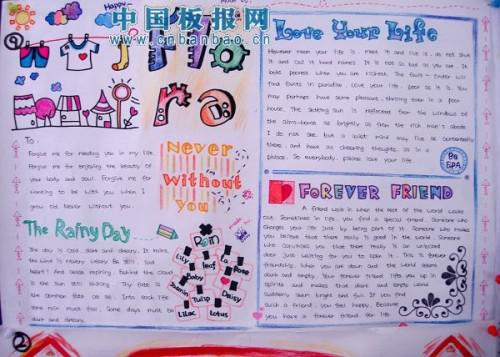 ①
Happy
中国板报网
www.cnbanbao.cn
Love Your Life
However mean your life is, meet it and live it; do not shun
it and call it hard names. It is not so bad as you are. It
looks poorest when you are richest. The fault-finder will
find faults in paradise. Love your life, poor as it is. You
may perhaps have some pleasant, thrilling
hours. The setting sun is reflected from the windows of
the alms-house as brightly as from the rich man's abode
I do not see but a quiet mind may live as contentedly
there, and have as cheering thoughts, as in a
palace. So everybody, please love your life
To:
Forgive me for needing you in my life.
Forgive me for enjoying the beauty of
your body and soul. Forgive me for
wanting to be with you when I
grow old. Never without you.
Never
without
you
FOREVER FRIEND
A friend walk in when the rest of the world walks
out. Sometimes in life, you find a special friend. Someone who
changes your life just by being part of it. Someone who makes
you believe that there really is good in the world. Someone
who convinces you that there really is an unlocked
door just waiting for you to open it. This is forever
friendship. when you're down and the world seems
dark and empty. Your forever friend lifts you up in
spirits and makes that dark and empty world
suddenly seem bright and full. If you find
such a friend, you feel happy. Because
you have a forever friend for life
The Rainy Day
The day is cold, dark and dreary. It rains
the wind is never weary. Be still, sad
heart! And cease repining. Behind the cloud
is the sun still shining. Thy fate is
the common fate of all. Into each life
some rain must fall. Some days must be
dark and dreary.
Rain
Lily
leaf
a
Rose
Baby
Tulip
Daisy
Lilac
Lotus
②